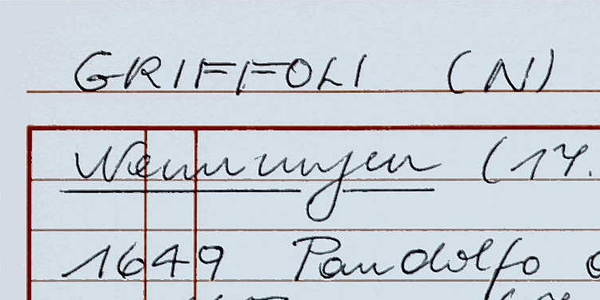 GRIFFOLI (N)
Nennungen (14.
1649 Pandolfo